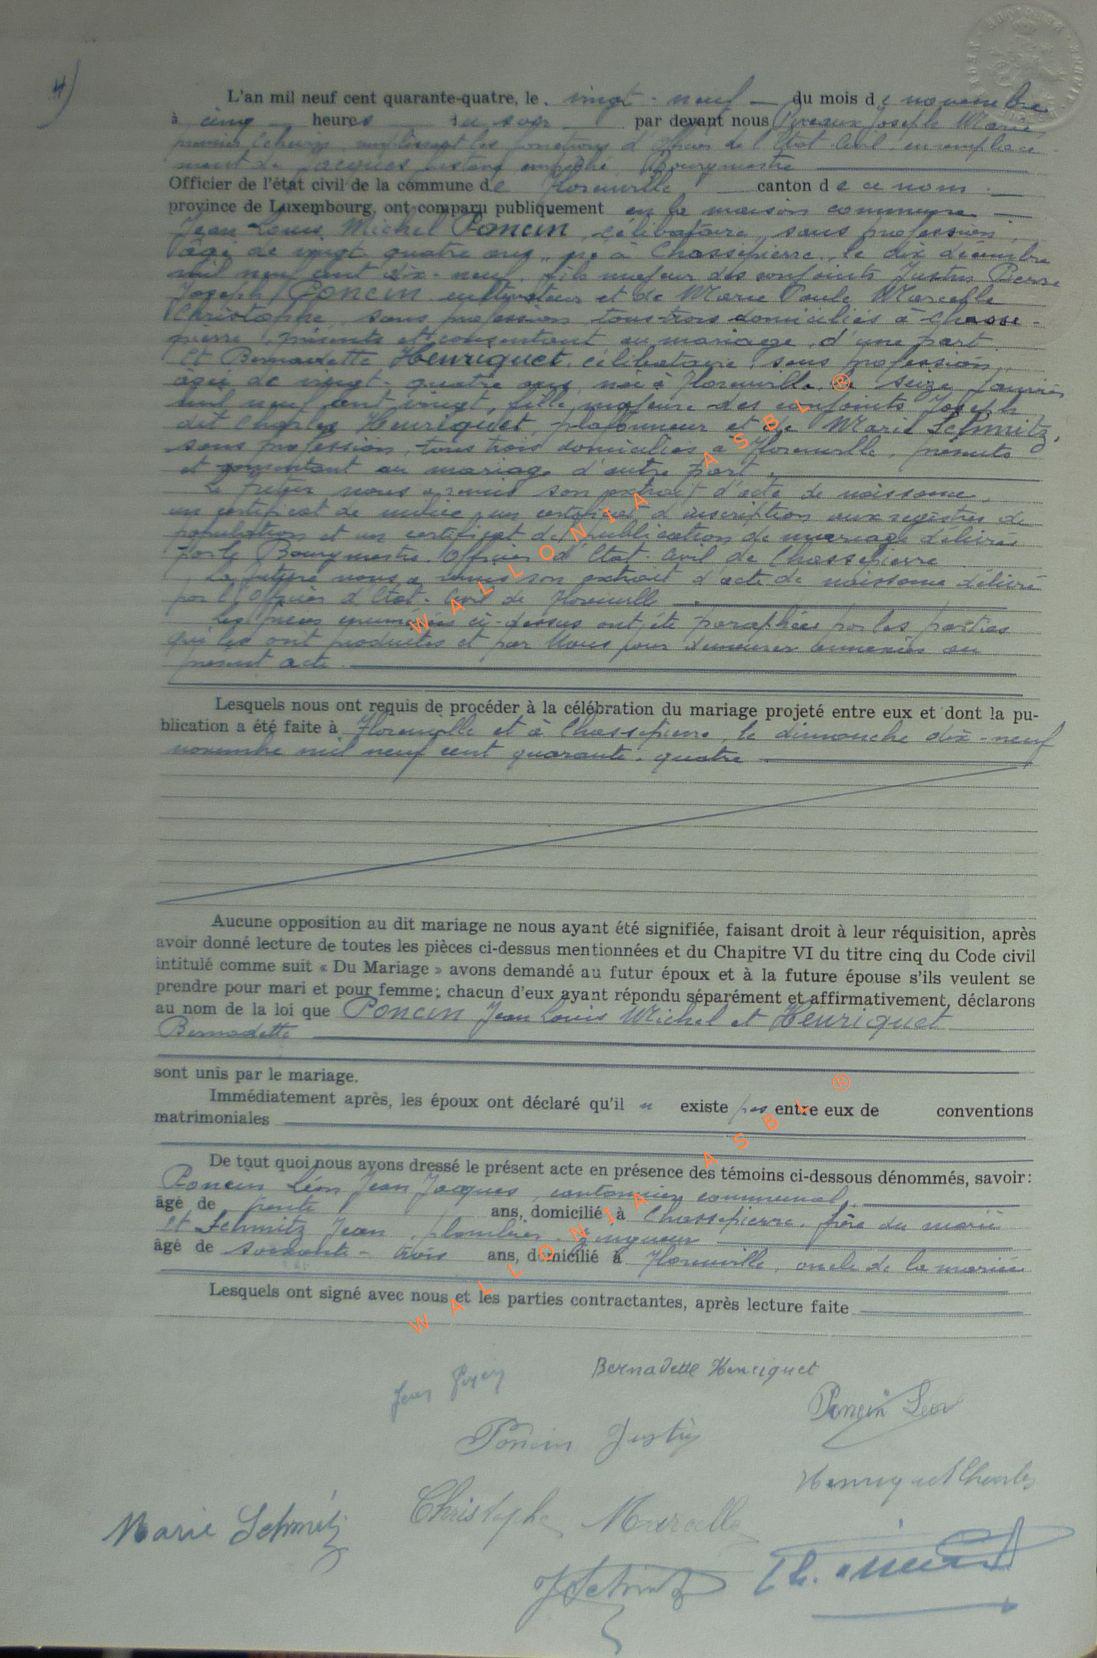 4)
L'an mil neuf cent quarante-quatre, le vingt-neuf du mois de novembre
à cinq heures du soir par devant nous Joseph Marie
premier Échevin remplissant les fonctions d'Officier de l'Etat-Civil en remplace-
ment de Jacques empêché, Bourgmestre
Officier de l'état civil de la commune de Florenville canton de ce nom
province de Luxembourg, ont comparu publiquement en la maison commune
Jean Louis Michel Poncin, célibataire, sans profession,
âgé de vingt-quatre ans, né à Chassepierre, le dix décembre
mil neuf cent dix-neuf, fils majeur des conjoints Justin Pierre
Joseph Poncin cultivateur et de Marie Paule Marcelle
Christophe, sans profession tous trois domiciliés à Chasse-
pierre, présents et consentant au mariage, d'une part.
Et Bernadette Henriquet, célibataire, sans profession,
âgée de vingt-quatre ans, née à Florenville le seize janvier
mil neuf cent vingt, fille majeure des conjoints Joseph
dit Charles Henriquet, plafonneur et de Marie Schmitz,
sans profession, tous trois domiciliés à Florenville, présents
et consentant au mariage d'autre part.
Le futur nous a remis son extrait d'acte de naissance,
un certificat de milice, un certificat d'inscription aux registres de
population et un certificat de publication de mariage délivrés
par le Bourgmestre Officier d'Etat-Civil de Chassepierre
La future nous a remis son extrait d'acte de naissance délivré
par l'Officier d'Etat-Civil de Florenville
Les pièces énumérées ci-dessus ont été paraphées par les parties
qui les ont produites et par Nous pour demeurer annexées au
présent acte.
Lesquels nous ont requis de procéder à la célébration du mariage projeté entre eux et dont la pu-
blication a été faite à Florenville et à Chassepierre, le dimanche dix-neuf
novembre mil neuf cent quarante-quatre
Aucune opposition au dit mariage ne nous ayant été signifiée, faisant droit à leur réquisition, après
avoir donné lecture de toutes les pièces ci-dessus mentionnées et du Chapitre VI du titre cinq du Code civil
intitulé comme suit « Du Mariage » avons demandé au futur époux et à la future épouse s'ils veulent se
prendre pour mari et pour femme; chacun d'eux ayant répondu séparément et affirmativement, déclarons
au nom de la loi que Poncin Jean Louis Michel et Henriquet
Bernadette
sont unis par le mariage.
Immédiatement après, les époux ont déclaré qu'il n existe pas entre eux de conventions
matrimoniales
De tout quoi nous avons dressé le présent acte en présence des témoins ci-dessous dénommés, savoir:
Poncin Léon Jean Jacques, cantonnier communal,
âgé de trente ans, domicilié à Chassepierre, frère du marié
et Schmitz Jean, plombier-zingueur
âgé de soixante-trois ans, domicilié à Florenville, oncle de la mariée
Lesquels ont signé avec nous et les parties contractantes, après lecture faite
WALLONIA ASBL ®
WALLONIA ASBL ®
Bernadette Henriquet
Jean Poncin
Poncin Léon
Poncin Justin
Henriquet Charles
Christophe Marcelle
Marie Schmitz
J Schmitz